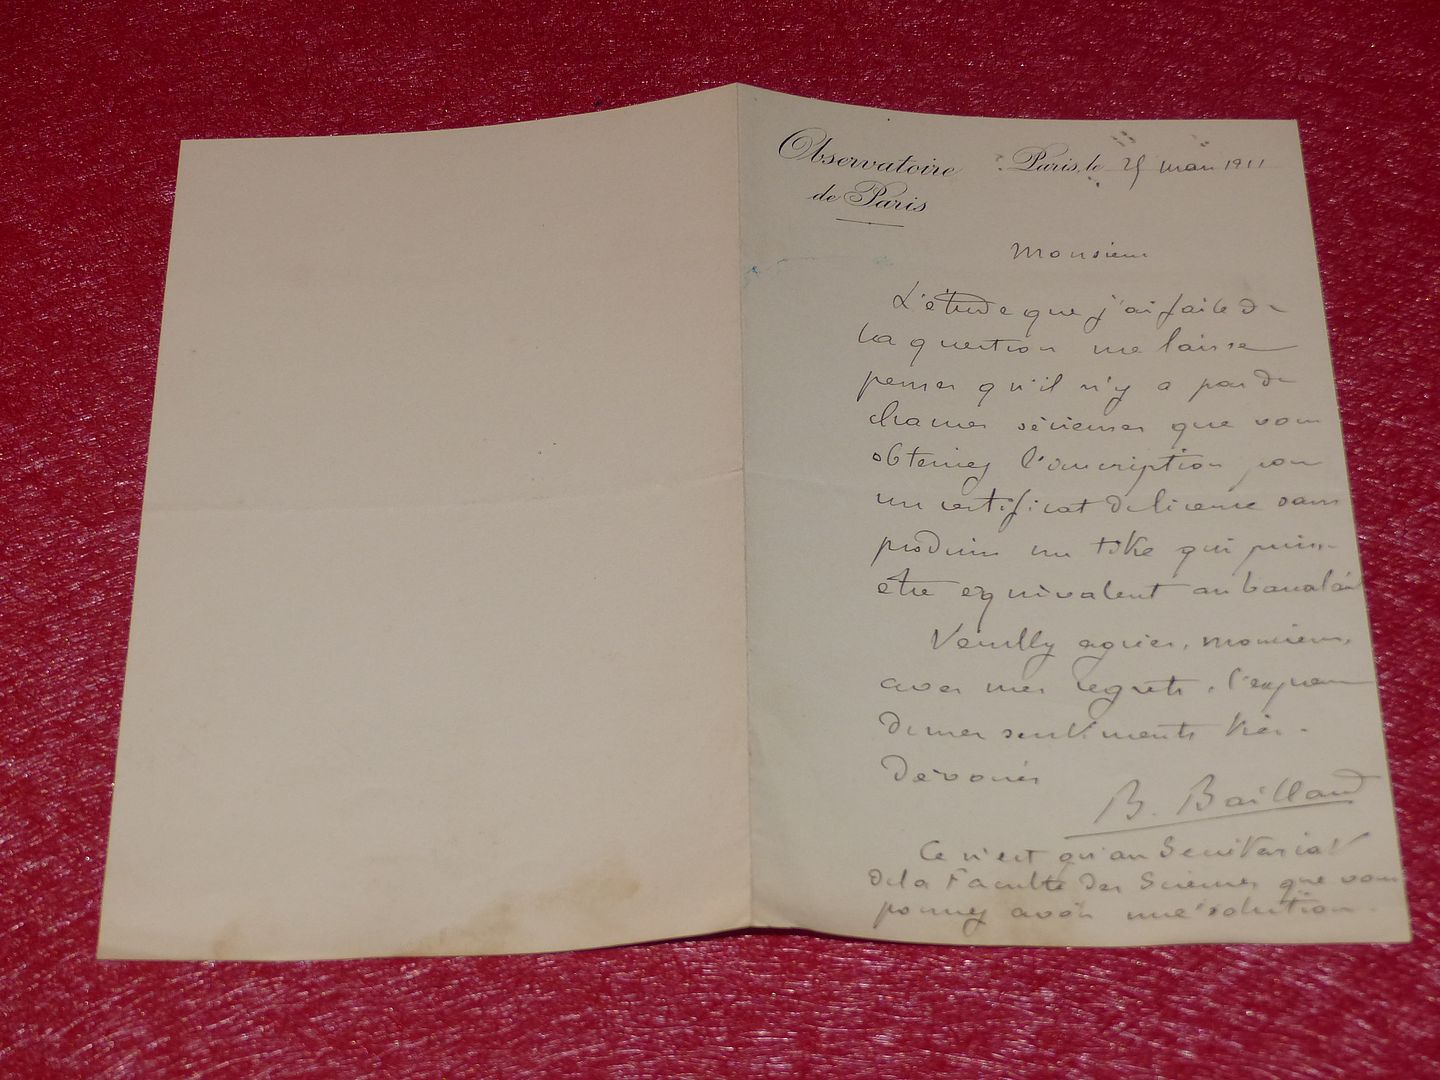 Observatoire
de Paris
Paris, le 25 mars 1911
Monsieur
L'étude que j'ai faite de
la question me laisse
penser qu'il n'y a pas de
chances sérieuses que vous
obteniez l'inscription pour
un certificat de licence sans
produire un titre qui puisse
être équivalent au baccalauréat
Veuillez agréer, monsieur,
avec mes regrets, l'expression
de mes sentiments très
dévoués
B. Baillaud
Ce n'est qu'au Secrétariat
de la Faculté des Sciences que vous
pourrez avoir une solution.